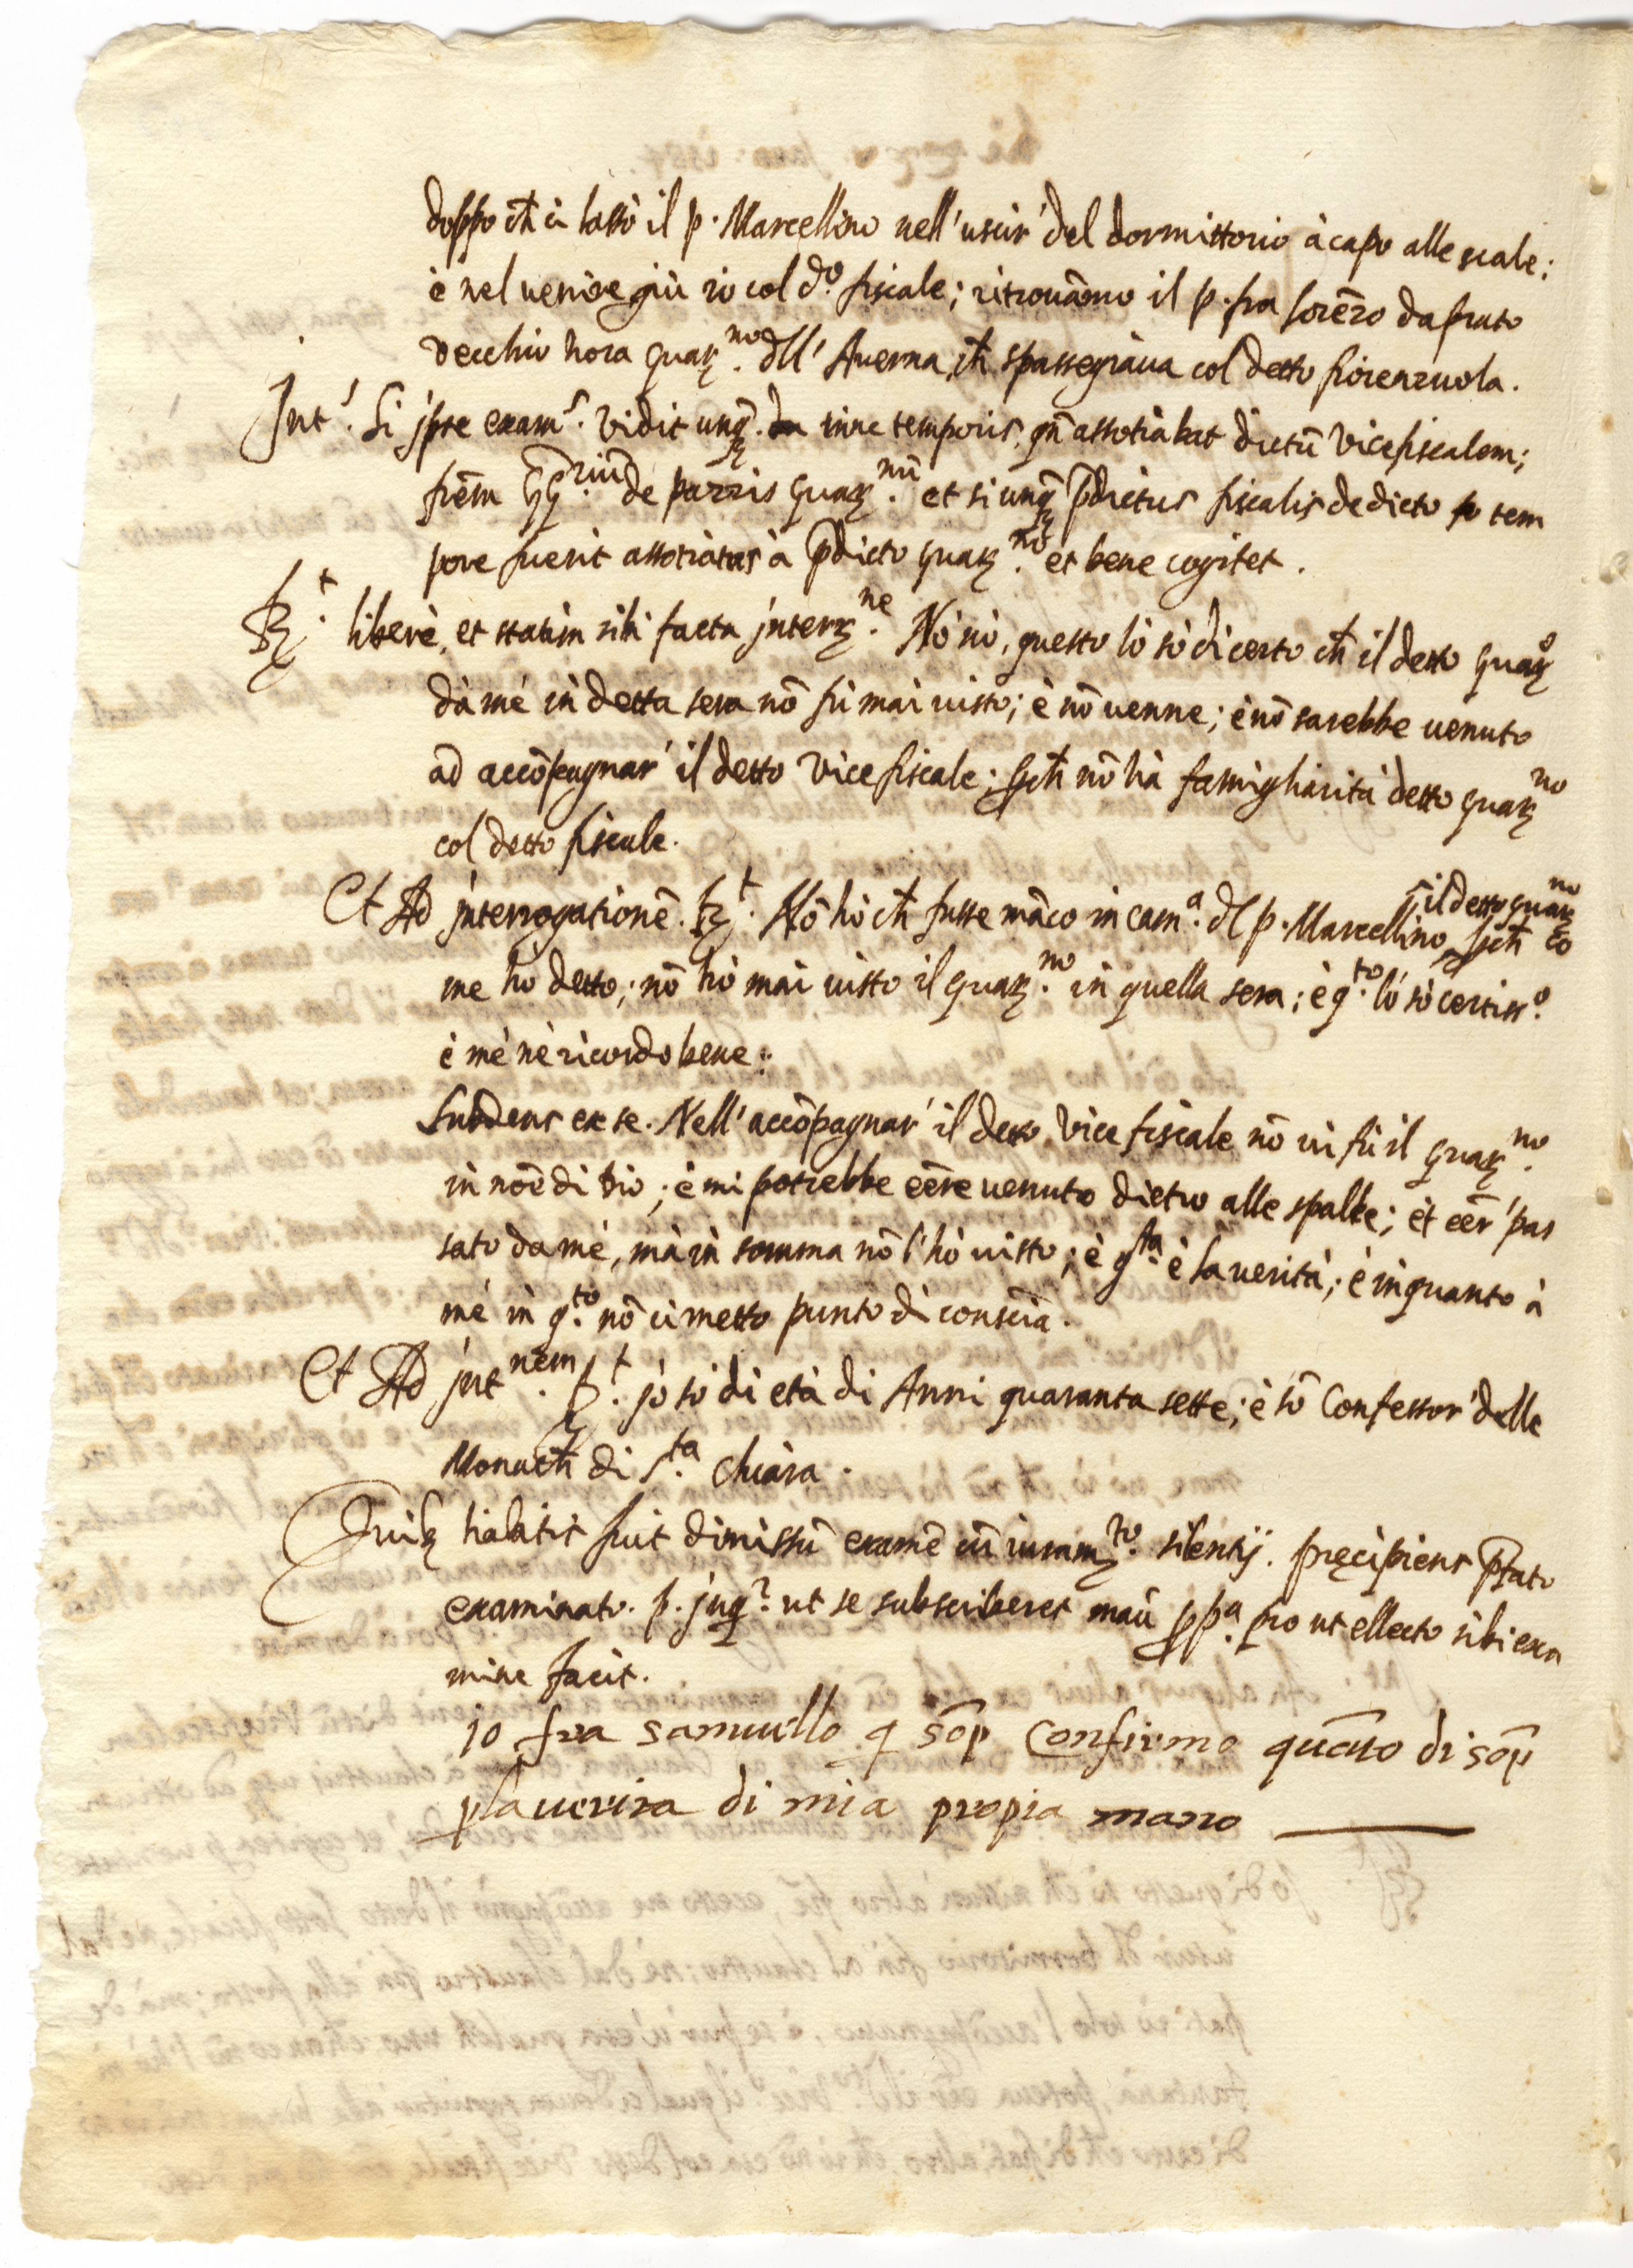 doppo ch̃ ci lassò il p. Marcellino nell'uscir' del dormittorio à capo alle scale;
è nel uenire giù io col d.º fiscale; ritrouãmo il p. fra Lorẽzo da prato
vecchio hora guar.no dll' Auerna, ch̃ spassegiaua col detto fiorenzuola.
Jnt.s Si jpse exam.s vidit unq̃. inne temporis, qñ assotiabat dictũ Vicefiscalem;
frẽm Gg.riũ de pazzis guar.nũ et si unq̃ p̃dictus fiscalis de dicto tem
pore fuerit assotiatus à p̃dicto guar.no et bene cogitet.
R.t liberè, et statim sibi facta jnterr.ne Nò nò, questo lo sò di certo ch̃ il detto guar.º
dà mé in detta sera nõ fù mai uisto; è nõ uenne; è nõ sarebbe uenuto
ad accõpagnar' il detto Vice fiscale; p̱ch̃ nõ hà famigliarità detto guar.no
col detto fiscale.
Et Ad jnterrogationẽ. R.t Nõ hò ch̃ fusse mãco in cam.a dl p. Marcellino il detto guar.no p̱ch̃ co
me ho detto; nõ hò mai uisto il guar.no in quella sera; è q.to lo sò certiss.º
è mé nè ricordo bene:
Subdens ex se. Nell'accõpagnar' il detto Vice fiscale nõ ui fù il guar.no
in nõe di Dio; è mi potrebbe eẽre uenuto dietro alle spalle; et eẽr' pas
sato da mé, mà in somma nõ l'hò uisto; è q.sta è la uerità; è in quanto à
mé in q.to nõ ci metto punto di consciã.
Et Ad jnt.nem R.t jo sò di età di Anni quaranta sette; è sõ Confessor' delle
Monach̃ di S.ta Chiara.
Quib habitis fuit dimissũ examẽ cũ iuram.to silentij. precipiens p̃fato
examinato. p. jnq.r ut se subscriberet manũ pp.a pro ut ellecto sibi exa
mine facit.
io fra Samuello q sõp Confirmo quãto di sõp
p la uerita di mia propia mano